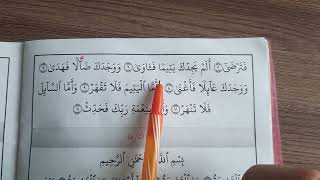 فَتَرْضَىٰٓ ۝ أَلَمْ يَجِدْكَ يَتِيمًا فَـَٔاوَىٰ ۝ وَوَجَدَكَ ضَآلًّا فَهَدَىٰ ۝
وَوَجَدَكَ عَآئِلًا فَأَغْنَىٰ ۝ الْيَتِيمَ فَلَا تَقْهَرْ ۝ وَأَمَّا السَّآئِلَ
فَلَا تَنْهَرْ ۝ بِنِعْمَةِ رَبِّكَ فَحَدِّثْ ۝
بِسْمِ اللَّهِ الرَّحْمَٰنِ الرَّحِيمِ